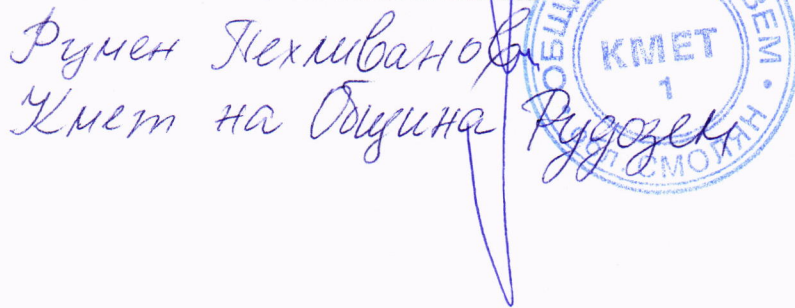 Румен Пехливанов
Кмет на Община Рудозем
КМЕТ
1